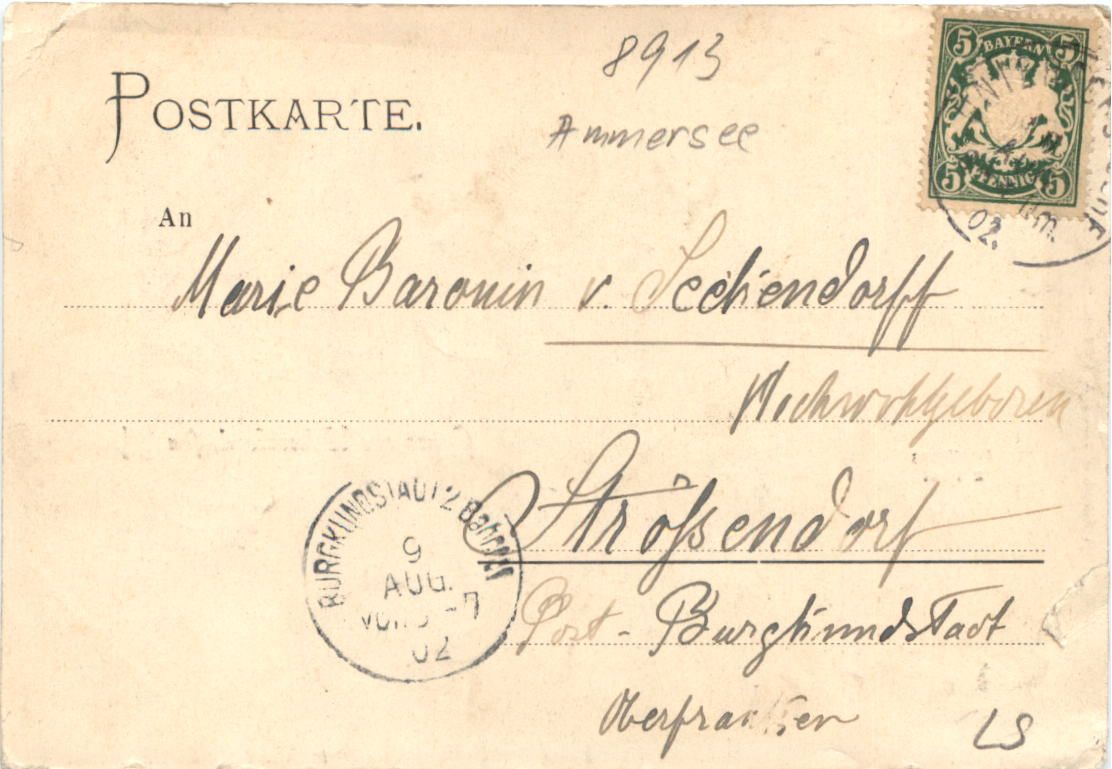 8913
Ammersee
5 BAYERN 5
5 PFENNIG 5
02.
POSTKARTE.
An
Marie Baronin v. Seckendorff
Hochwohlgeboren
Strössendorf
BURGKUNDSTADT 2 Bahnpf
9
AUG.
02
Post - Burgkundstadt
Oberfranken
LS